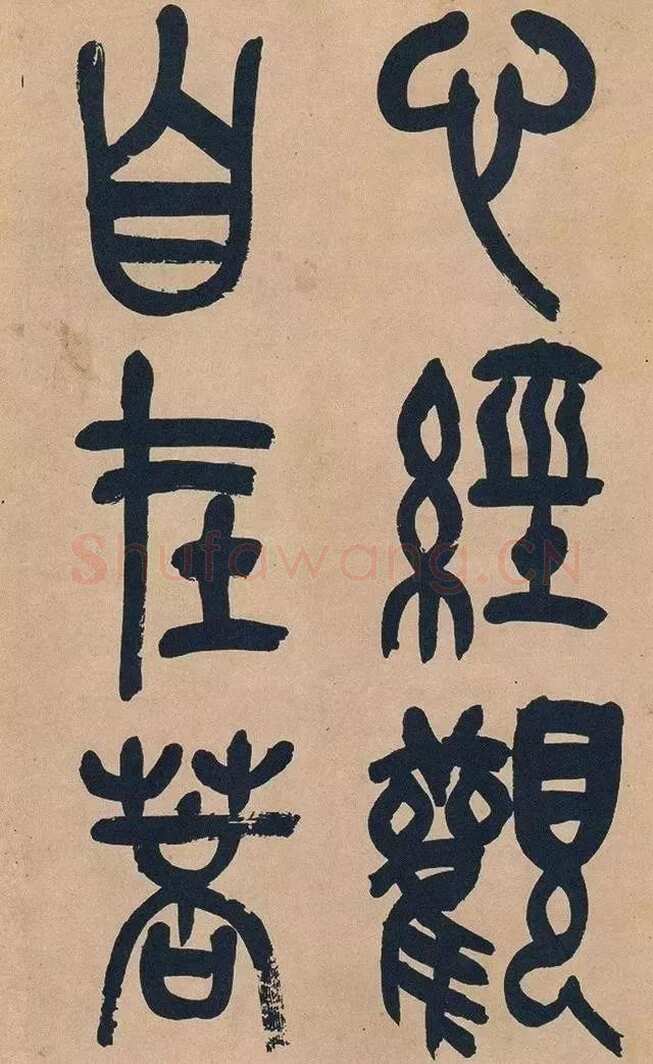 心經觀
自在菩
Shufawang.CN